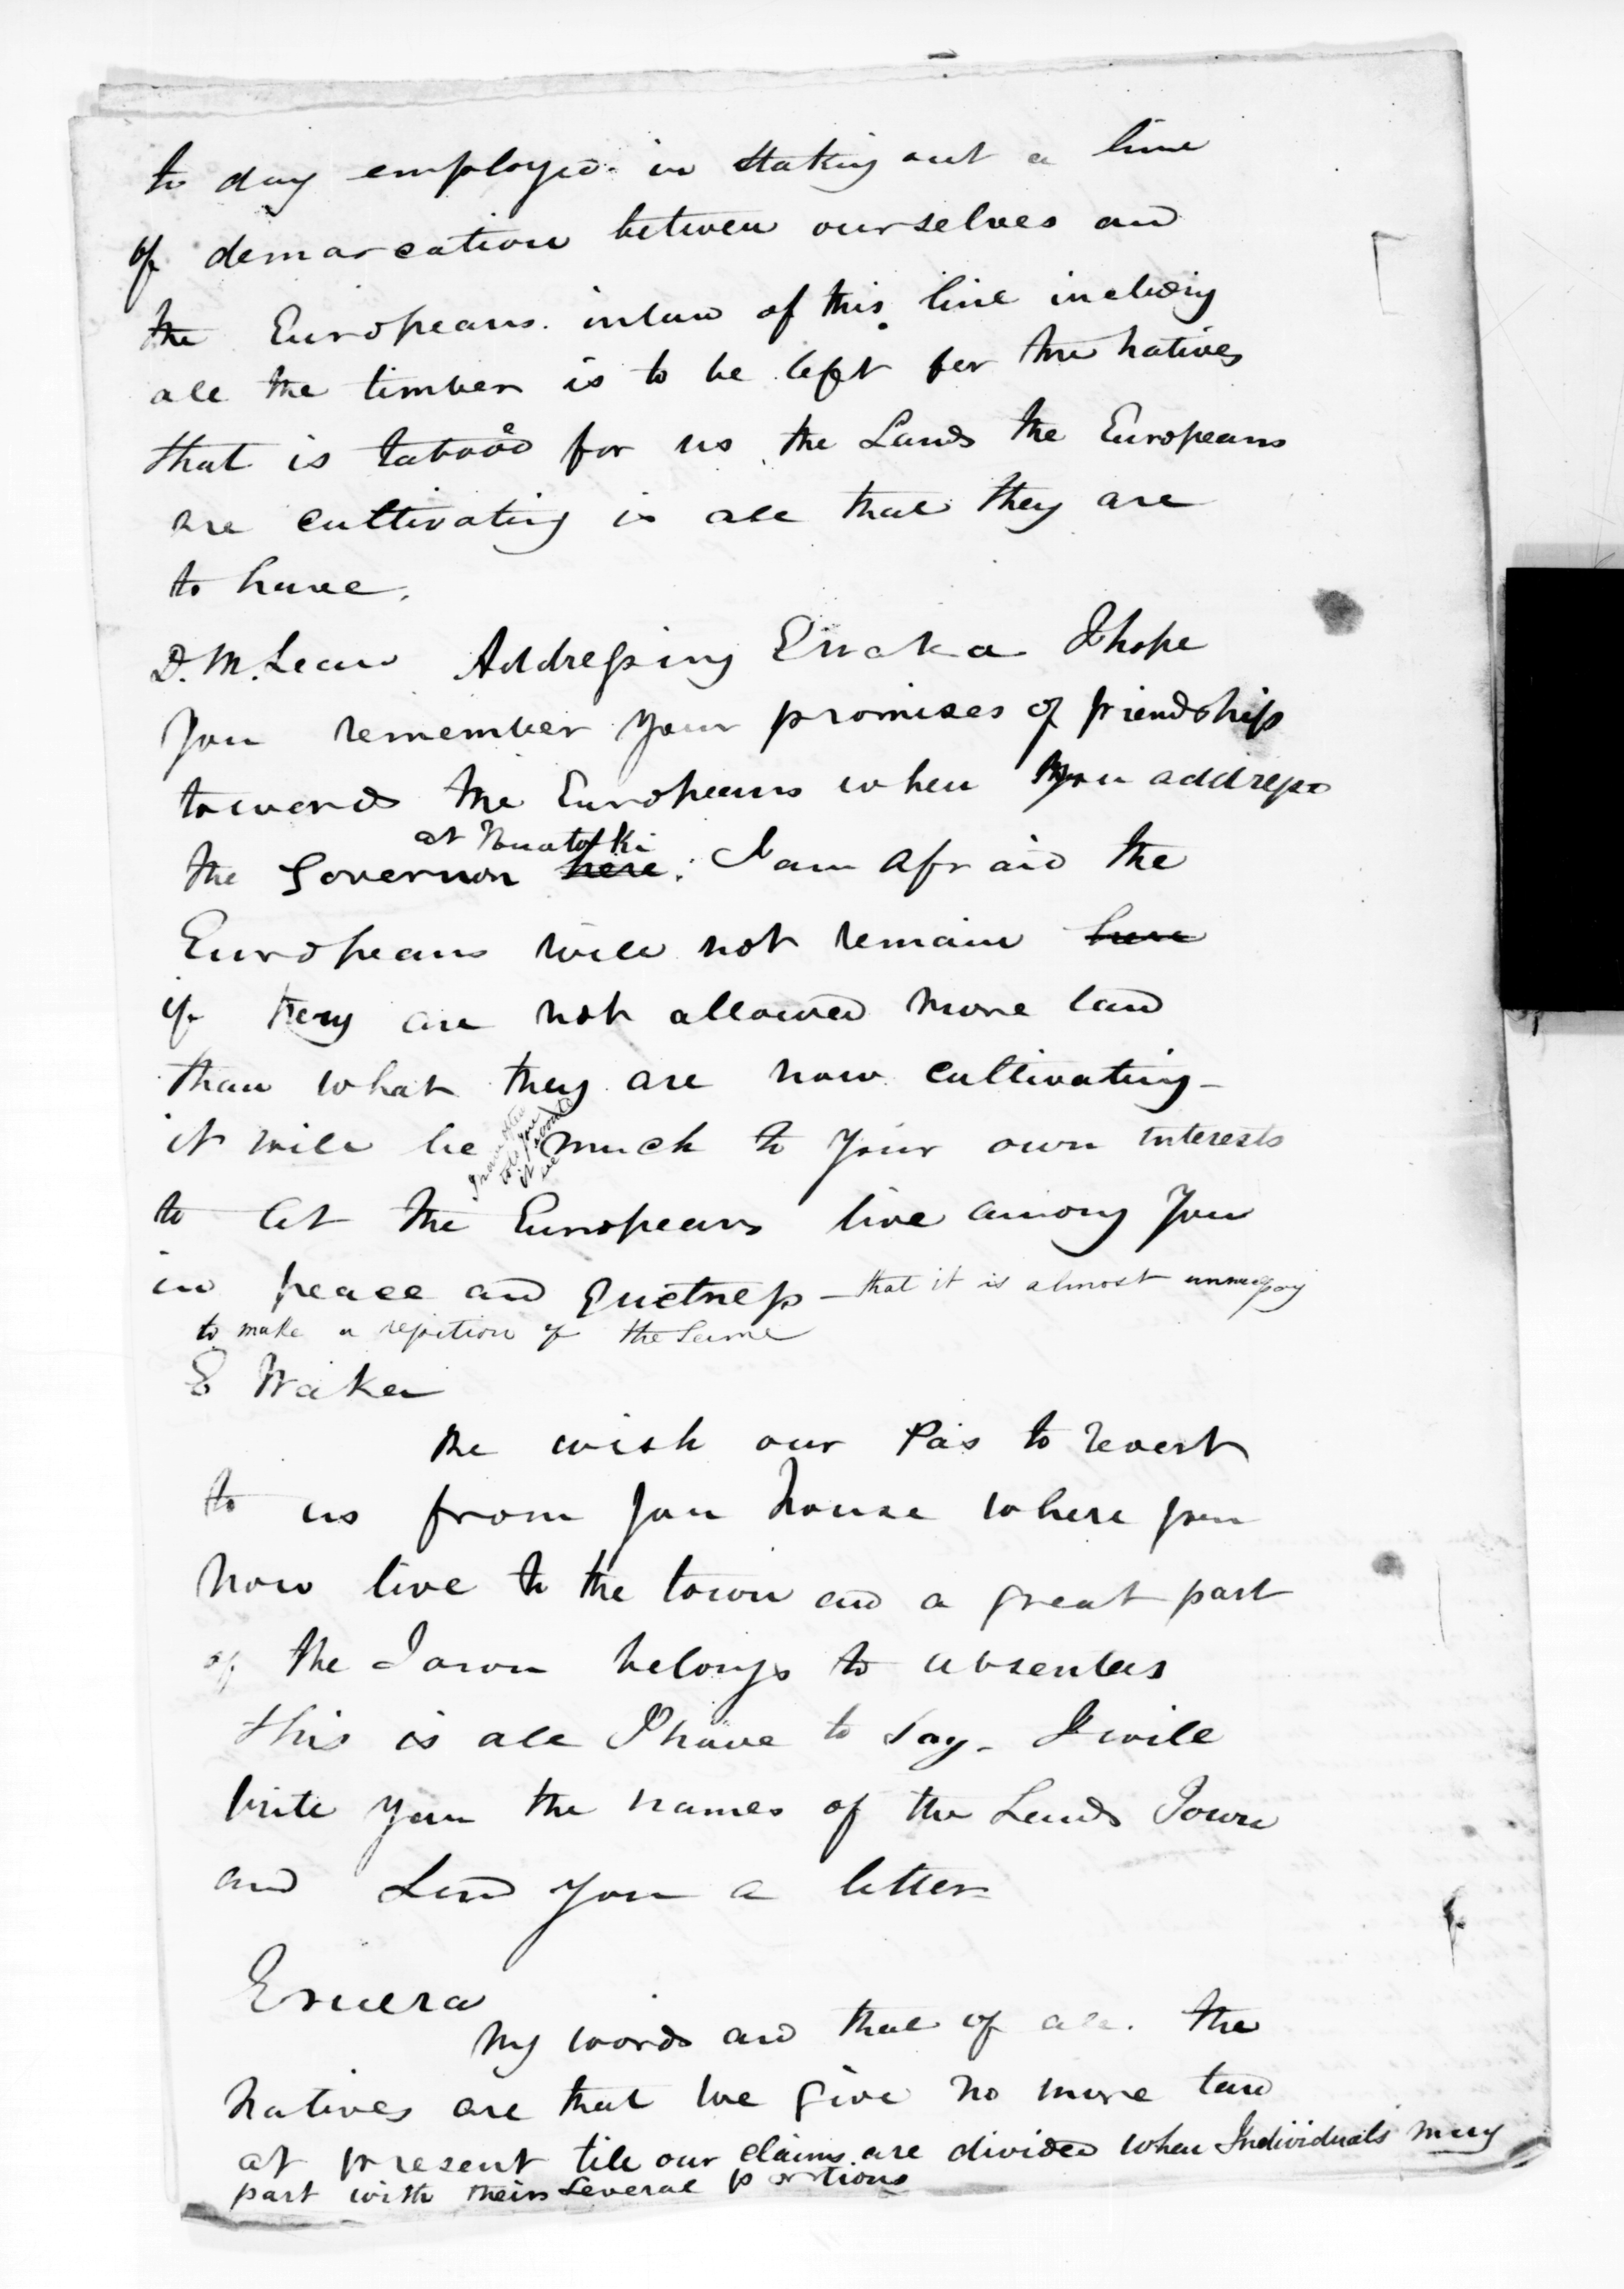 to day employed in staking out a line
of demarcation between ourselves and
the Europeans. inland of this line including
all the timber is to be left for the natives
that is tabooed for us, the Lands the Europeans
are cultivating is all that they are
to have.
D. McLean Addressing Eruka I hope
you remember your promises of friendship
towards the Europeans when you address
at
the Governor here. I am afraid the
Europeans will not remain here
if they are not allowed more land
than what they are now cultivating -
I have often told you it would be
it will be much to your own interests
to let the Europeans live among you
in peace and quietness - that it is almost unnecessary
to make a repition of the same
E Waka
We wish our Pas to revert
to us from you house where you
now live to the town and a great part
of the Town belongs to absentees
this is all I have to say. I will
write you the names of the Lands I own
and send you a letter
Eruera
My words and that of all the
natives are that we give no more land
at present till our claims are divided when Individuals may
part with their several portions